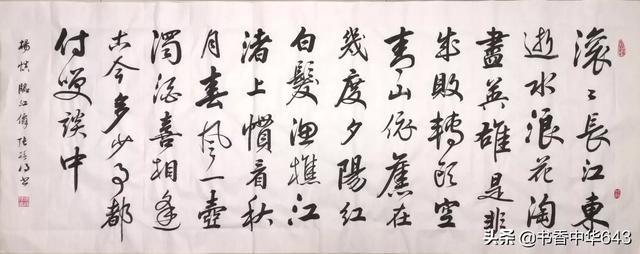 滚〻長江東
逝水浪花淘
盡英雄是非
成敗轉頭空
青山依舊在
幾度夕陽紅
白髮漁樵江
渚上慣看秋
月春風一壺
濁酒喜相逢
古今多少事都
付笑談中
楊慎 臨江仙
头条 @书香中华643